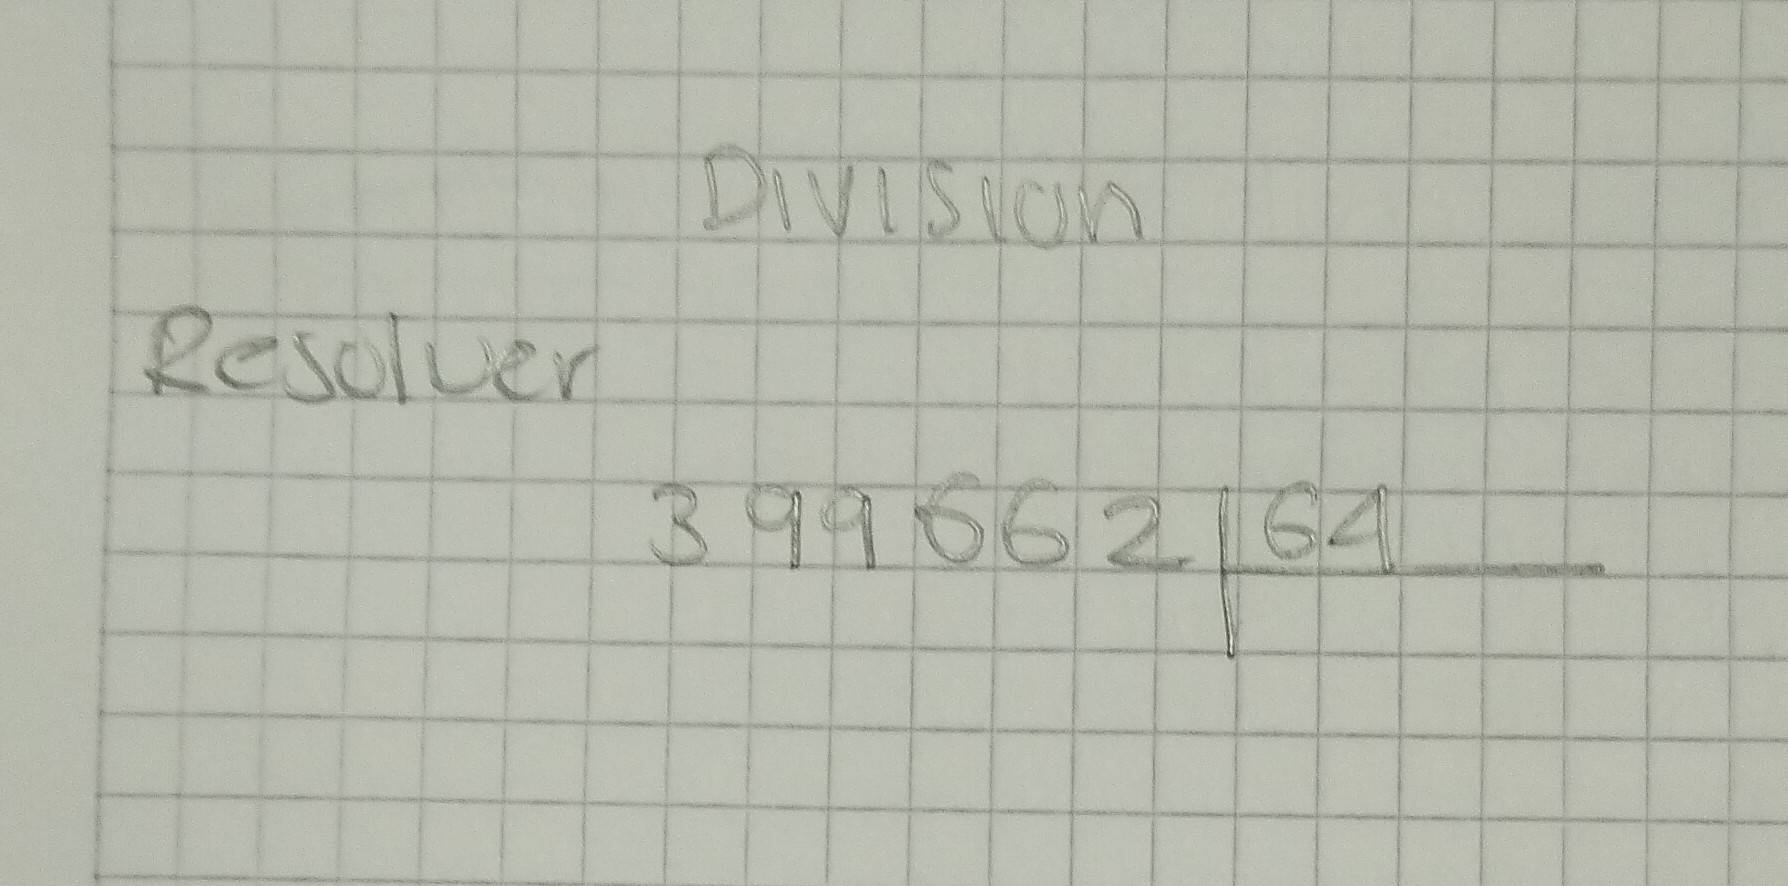 Division
Resolver
399662 | 64